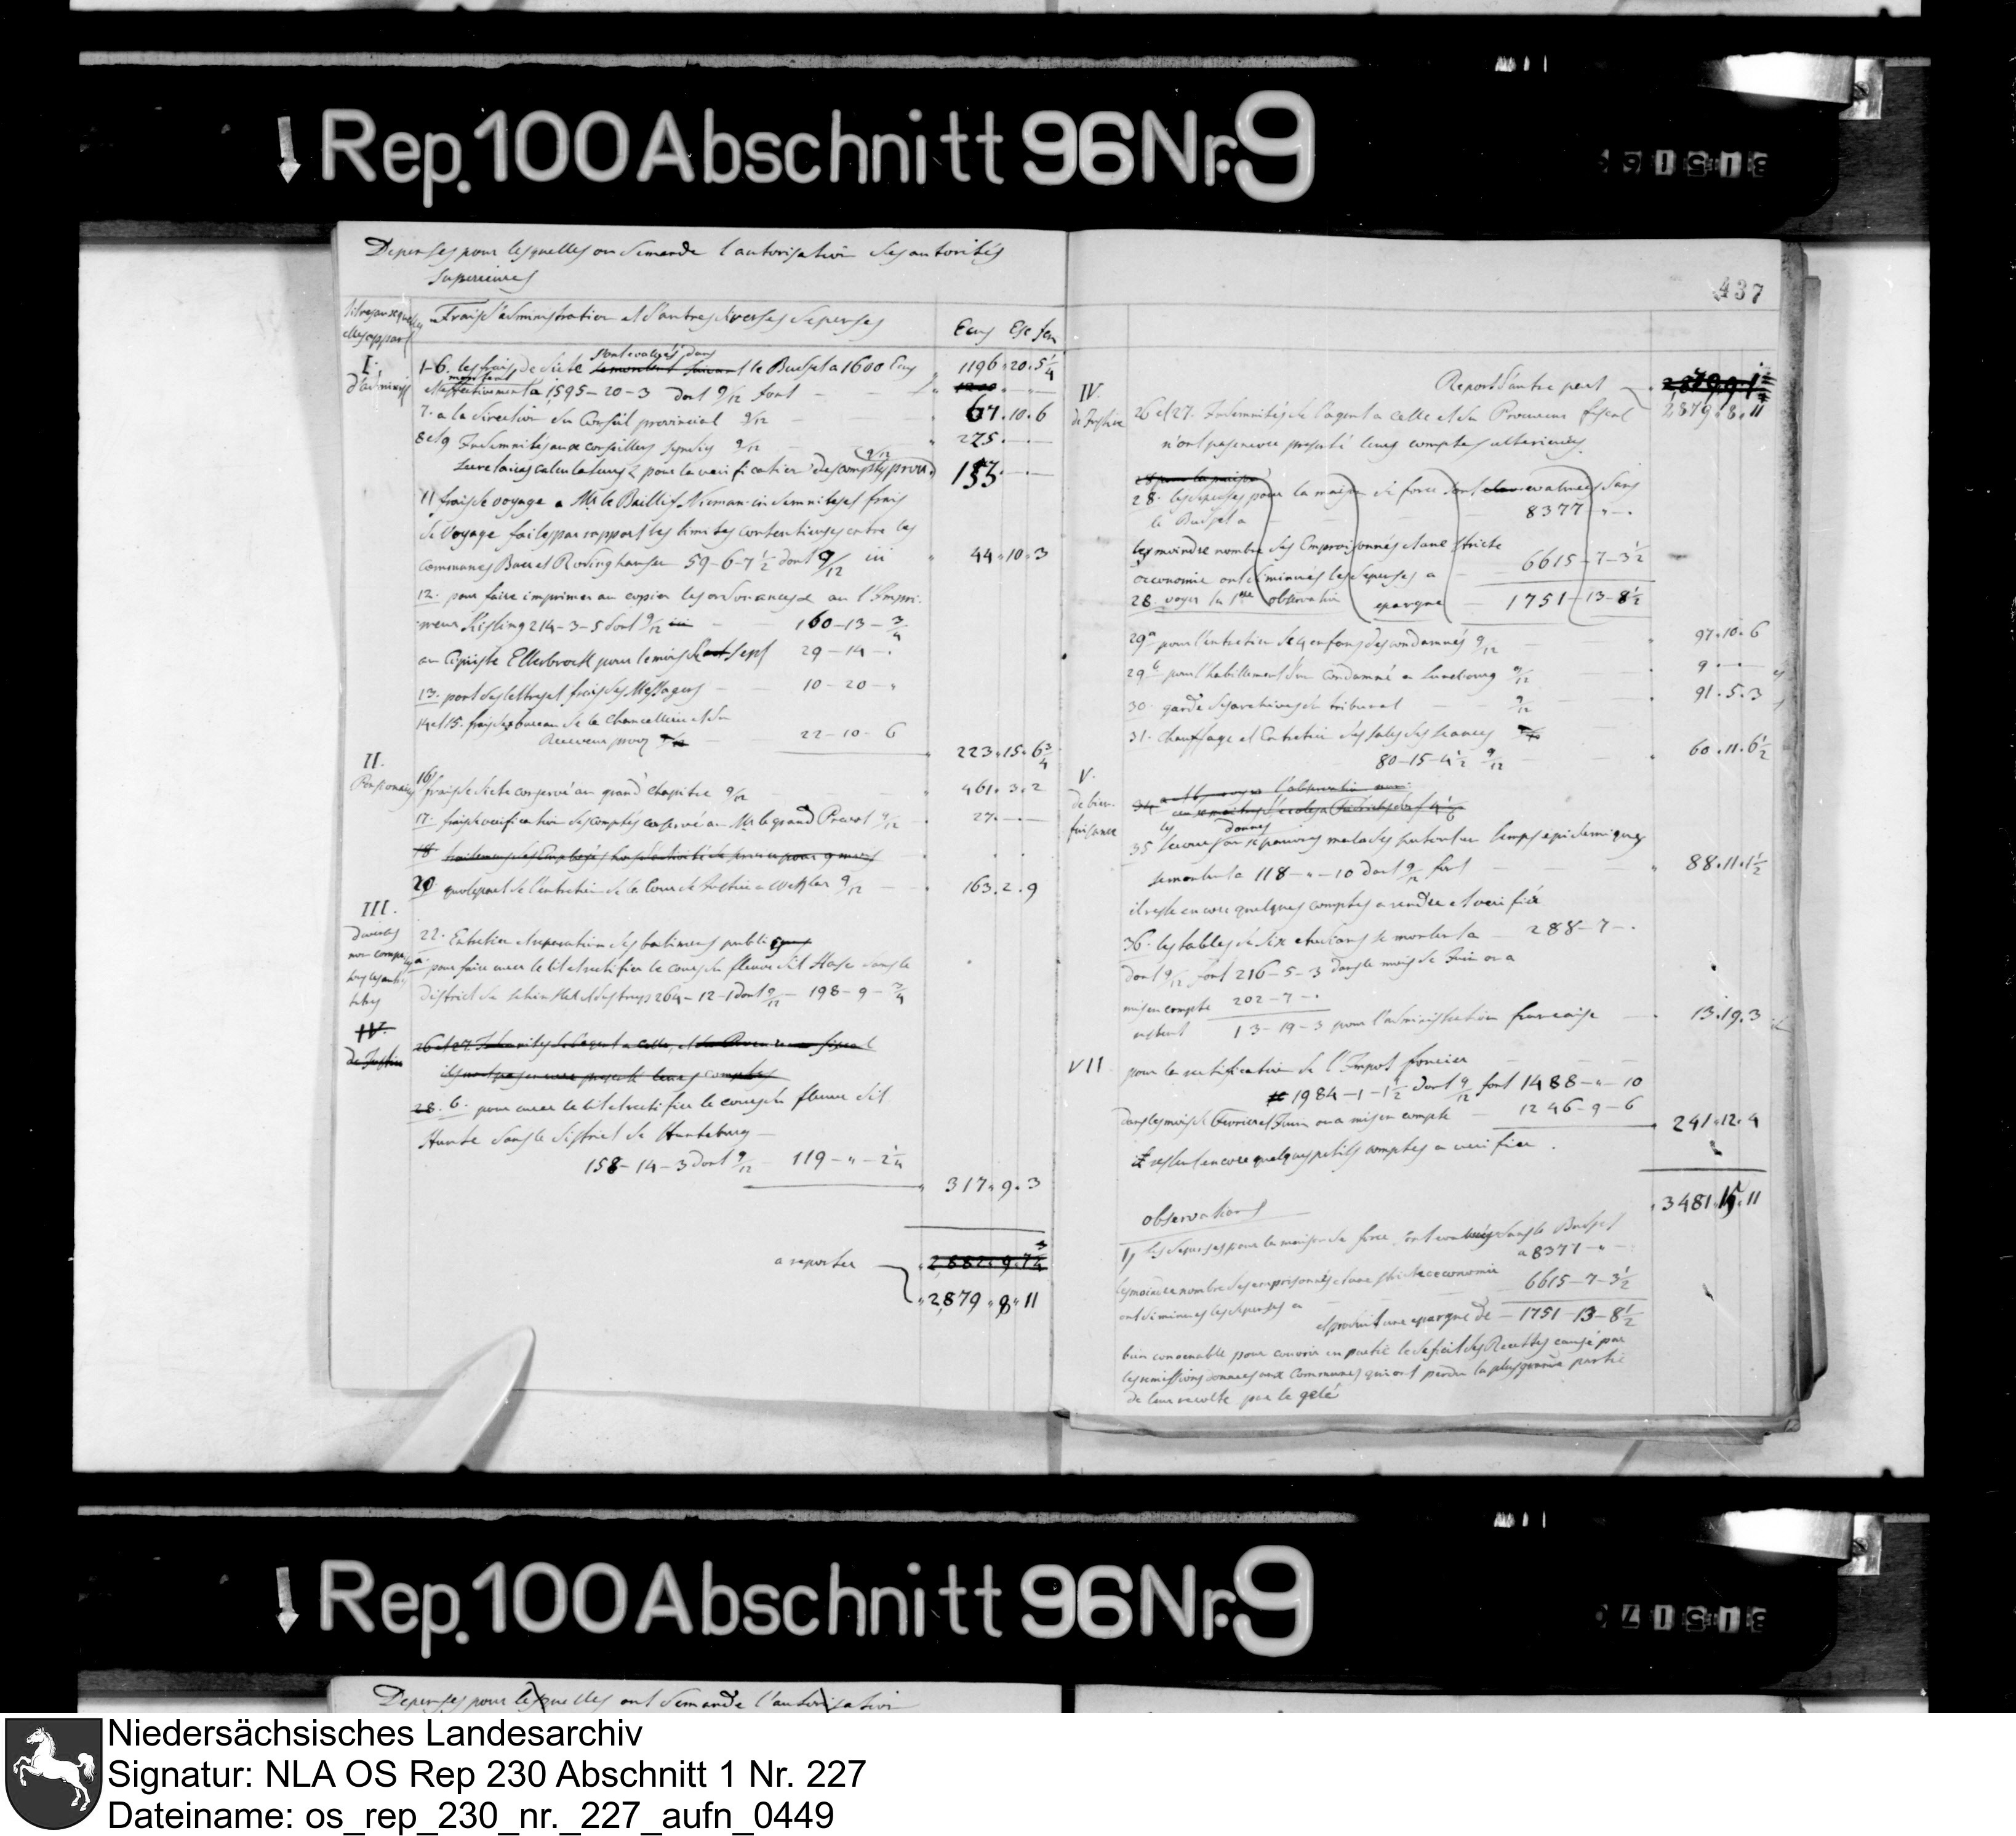 Rep. 100 Abschnitt 96 Nr. 9
Depenses pour lesquelles on demande l'autorisation des autorités
superieures
Frais d'administration et d'autres diverses depenses
Ecus Esc fen
I.
1-6. les frais de diete sont evalués dans le Budget a 1600 Ecus
1196 . 20 . 5 1/4
effectivement a 1595 - 20 - 3 dont 9/12 font
7. a la direction du Conseil provincial 9/12
67 . 10 . 6
8 et 9 Indemnités aux conseillers syndics 9/12
225 . — . —
Secretaires calculateurs pour la verification des comptes prov. 9/12
11 frais de voyage a Mr le Baillif Nieman indemnites et frais
de voyage faites par rapport les limites contentieuses entre les
communes Buer et Rodinghausen 59 - 6 - 7 1/2 dont 9/12
44 . 10 . 3
12. pour faire imprimer ou copier les ordonances a l'Impri-
meur Kisling 214 - 3 - 5 dont 9/12
160 - 13 - 3/4
au Copiiste Ellerbrock pour le mois de Sept
29 - 14 - .
13. port des lettres et frais des Messagers
10 - 20 - "
14 et 15. frais de bureau de la Chancellerie et du
Receveur prov.
22 - 10 - 6
223 . 15 . 6 3/4
II.
Pensionaires
16) frais de diete conservé au grand Chapitre 9/12
461 . 3 . 2
17. frais de verification des comptes conservé au Mr le grand Prevot 9/12
27 . — . —
20. quotepart de l'entretien de la Cour de Justice a Wetzlar 9/12
163 . 2 . 9
III.
22. Entretien et reparation des batimens publics
a. pour faire curer le lit et rectifier le cours du fleuve dit Hase dans le
district de 264 - 12 - 1 dont 9/12 — 198 - 9 - 3/4
IV.
de Justice
b. pour curer le lit et rectifier le cours du fleuve dit
Hunte dans le district de Hunteburg —
158 - 14 - 3 dont 9/12 119 - " - 2 1/4
317 . 9 . 3
a reporter
2,879 . 8 . 11
437
Report d'autre part
2,879 . 8 . 11
IV.
de Justice
26 et 27. Indemnités de l'agent a Celle et du Procureur fiscal
n'ont pas encore presenté leurs comptes ulterieurs.
28. les depenses pour la maison de force sont evaluées dans
le Budget a
8377 - " - .
les moindre nombre des Emprisonnés et une stricte
oeconomie ont diminués les depenses a
6615 - 7 - 3 1/2
28. voyez la 1ere observation
epargne
1751 - 13 - 8 1/2
29a pour l'entretien de 4 enfans des condamnés 9/12
97 . 10 . 6
29b pour l'habillement d'un Condamné a Lunebourg 9/12
9 . — . —
30. garde des archives du tribunal 9/12
91 . 5 . 3
31. Chauffage et Entretien des sales des seances
80 - 15 - 4 1/2 9/12
60 . 11 . 6 1/2
V.
de bien-
faisance
35 les secours donnés aux pauvres malades surtout en temps epidemiques
se montent a 118 - " - 10 dont 9/12 font
88 . 11 . 1 1/2
il reste encore quelques comptes a rendre et verifier
36. les tables de dix etudians se montent a 288 - 7 - .
dont 9/12 sont 216 - 5 - 3 dans le mois de Juin on a
mis en compte 202 - 7 - .
restent 13 - 19 - 3 pour l'administration francaise
13 . 19 . 3
VII
pour la rectification de l'Impot foncier
1984 - 1 - 1 1/2 dont 9/12 font 1488 - " - 10
dans les mois de Fevrier et Juin on a mis en compte
1246 - 9 - 6
241 . 12 . 4
il restent encore quelques petits comptes a verifier.
3481 . 15 . 11
observations
1) les depenses pour la maison de force sont evaluées dans le Budget
a 8377 - " -
les moindre nombre des emprisonnés et une stricte oeconomie
ont diminues les depenses a
6615 - 7 - 3 1/2
et produit une epargne de — 1751 - 13 - 8 1/2
bien convenable pour couvrir en partie le deficit des Recettes causé par
les remissions donnees aux Communes qui ont perdu la plus grande partie
de leur recolte par la gelé
Rep. 100 Abschnitt 96 Nr. 9
Depenses pour lesquelles ont demande l'autorisation
Niedersächsisches Landesarchiv
Signatur: NLA OS Rep 230 Abschnitt 1 Nr. 227
Dateiname: os_rep_230_nr._227_aufn_0449